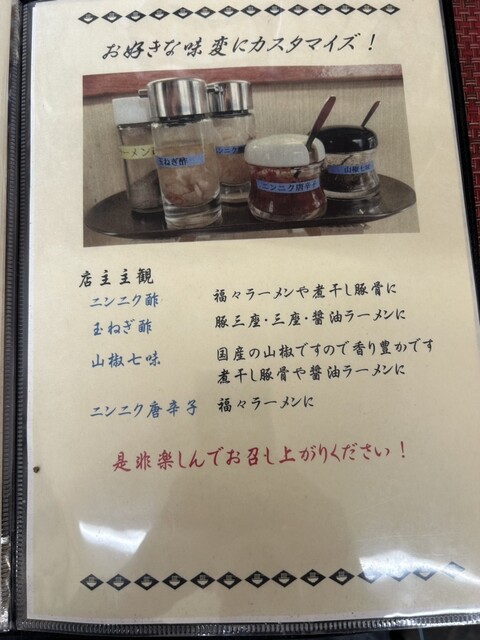 お好きな味変にカスタマイズ！
ラーメン
玉ねぎ酢
ニンニク酢
ニンニク唐辛子
山椒七味
店主主観
ニンニク酢 福々ラーメンや煮干し豚骨に
玉ねぎ酢 豚三座・三座・醤油ラーメンに
山椒七味 国産の山椒ですので香り豊かです
煮干し豚骨や醤油ラーメンに
ニンニク唐辛子 福々ラーメンに
是非楽しんでお召し上がりください！